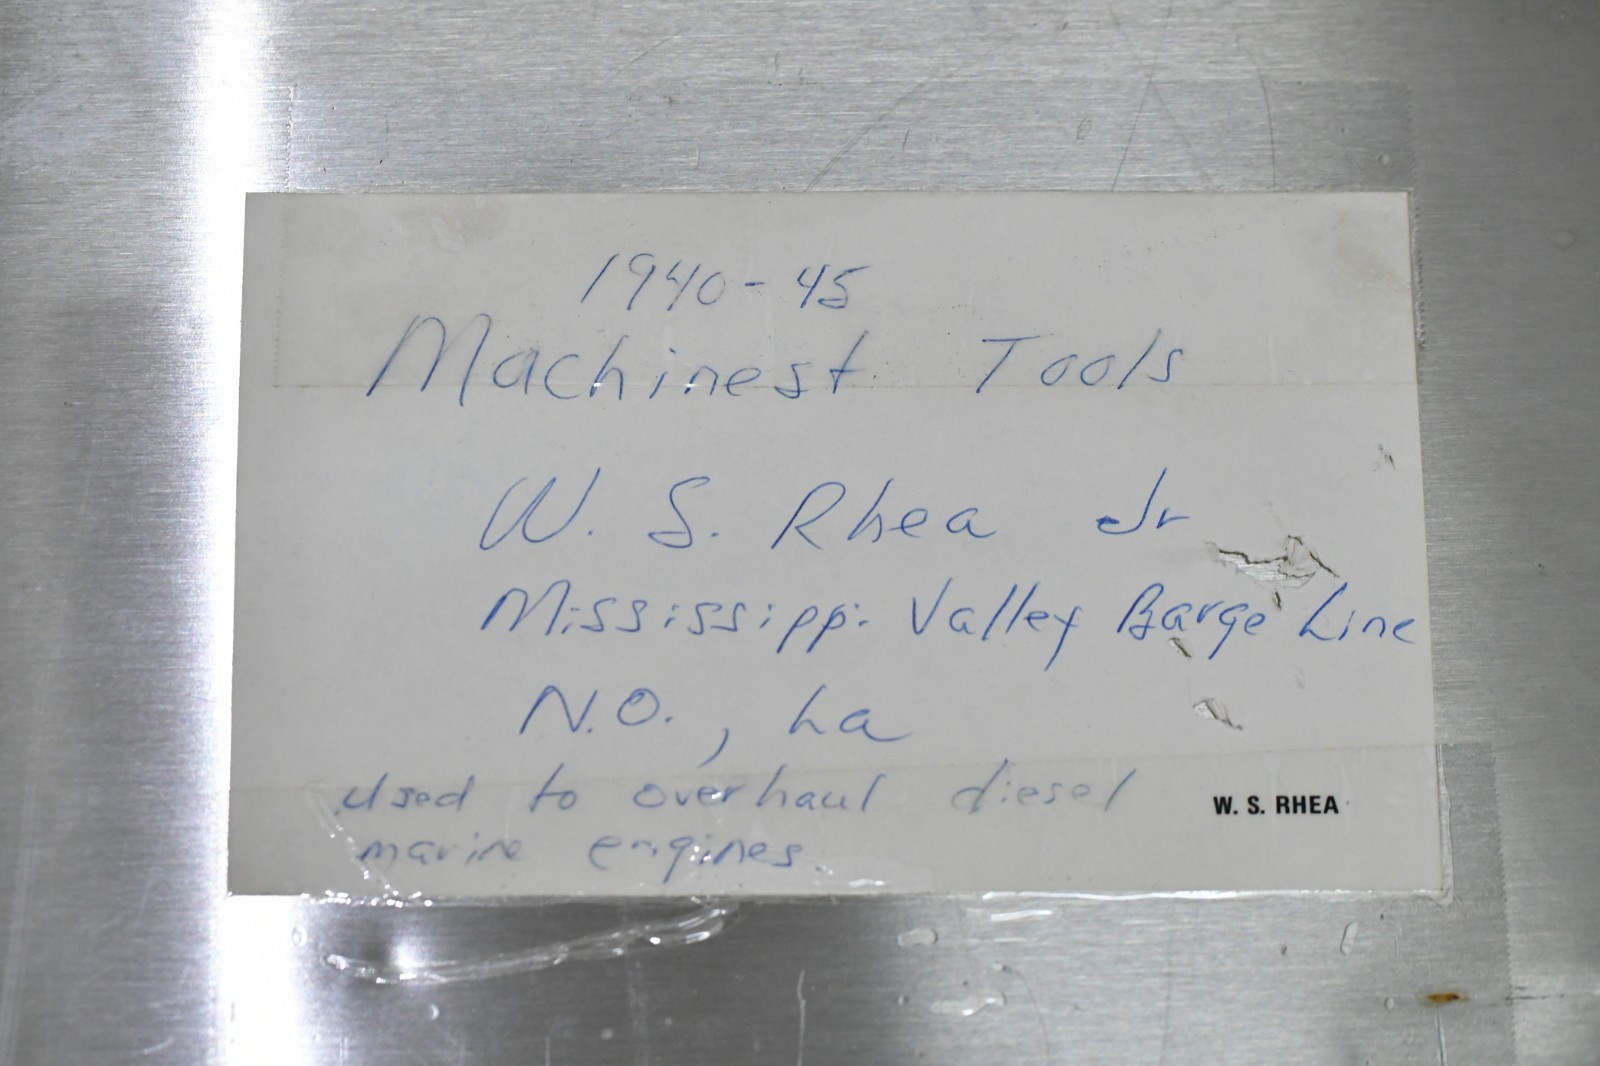 1940-45
Machinest Tools
W. S. Rhea Jr
Mississippi Valley Barge Line
N.O., La
Used to overhaul diesel
marine engines.
W. S. RHEA